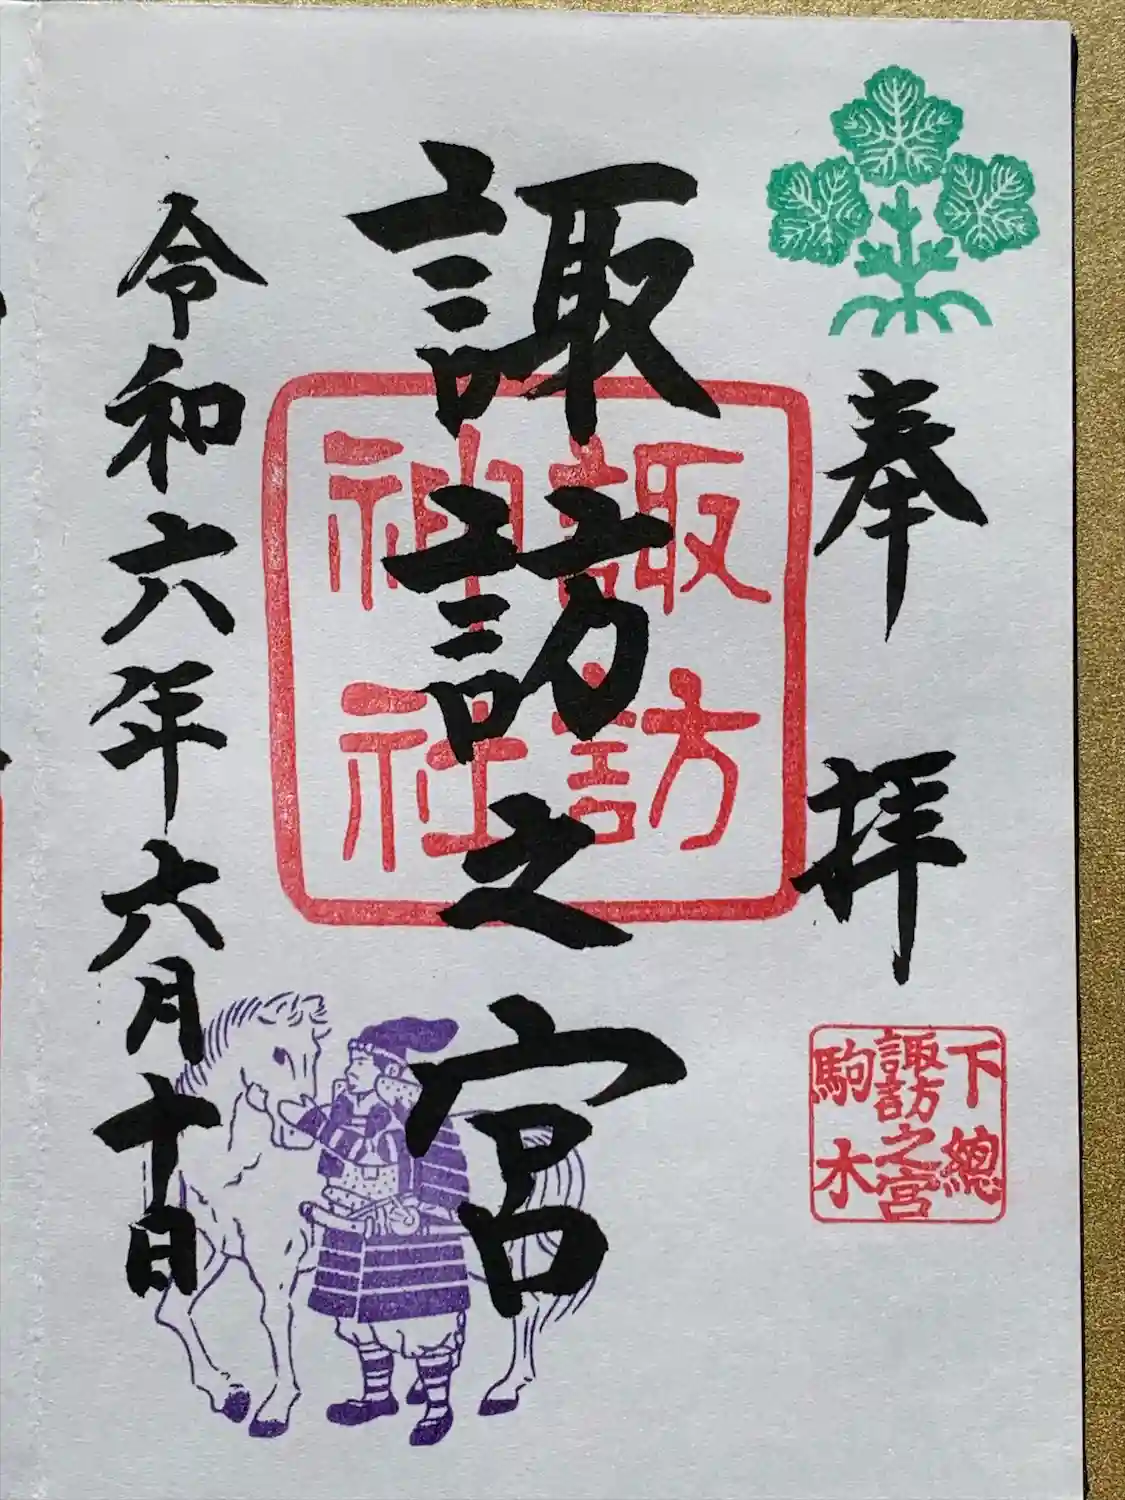 奉拝
下總
諏訪之宮
駒木
諏訪之宮
諏訪
神社
令和六年六月十日